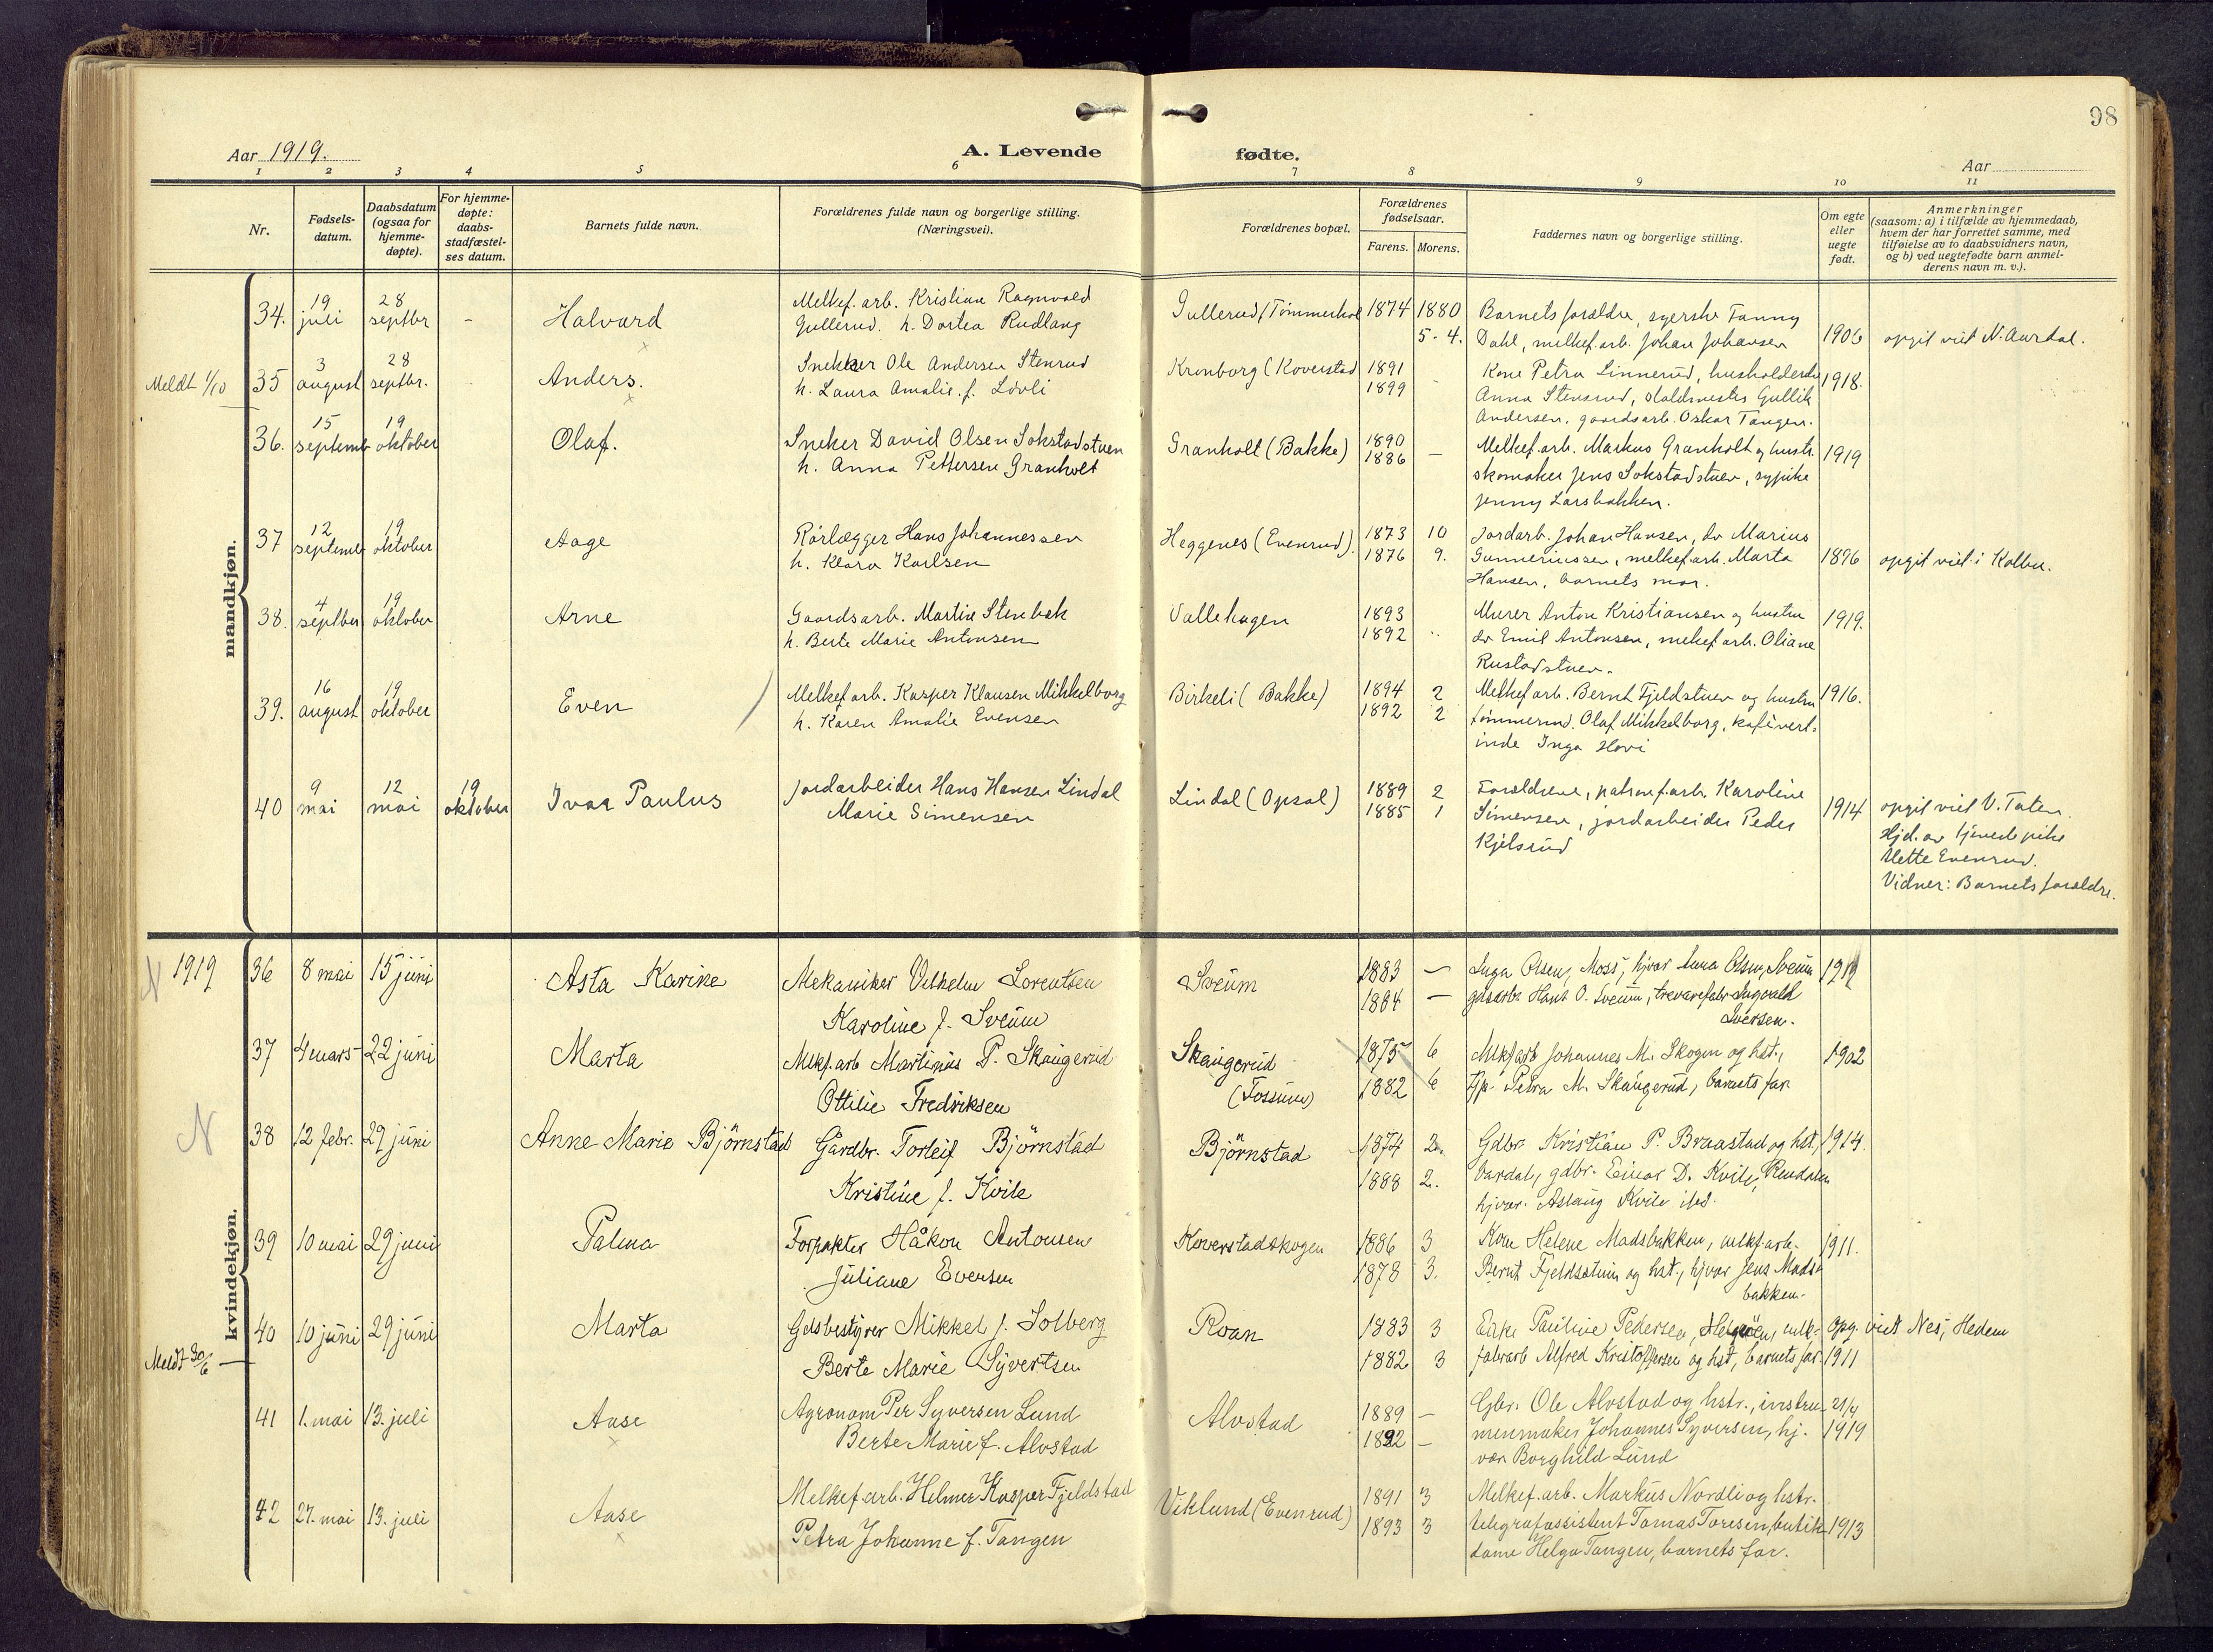 98
Aar 1919.
A. Levende
fødte.
Aar
1 2 3 4 5 6 7 8 9 10 11
Nr.
Fødsels-
datum.
Daabsdatum
(ogsaa for
hjemme-
døpte).
For hjemme-
døpte:
daabs-
stadfæstel-
ses datum.
Barnets fulde navn.
Forældrenes fulde navn og borgerlige stilling.
(Næringsvei).
Forældrenes bopæl.
Forældrenes
fødselsaar.
Farens. Morens.
Faddernes navn og borgerlige stilling.
Om egte
eller
uegte
født.
Anmerkninger
(saasom: a) i tilfælde av hjemmedaab,
hvem der har forrettet samme, med
tilføielse av to daabsvidners navn,
og b) ved uegtefødte barn anmel-
derens navn m. v.).
mandkjøn.
34. 19 juli 28 septbr - Halvard
Melkef. arb. Kristian Ragnvald
Gullerud. h. Dortea Rudlang
Gullerud (Tømmerhol 1874 1880
5-4.
Barnets forældre, syerske Fanny
Dahl, melkef.arb. Johan Johansen
1906 opgit viet N. Aurdal.
Meldt 1/10
35 3 august 28 septbr. Anders.
Snekker Ole Andersen Stenrud
h. Laura Amalie. f. Lövli
Kronborg (Koverstad 1891
1899 -
Kone Petra Linnerud, husholderske
Anna Stensrud, staldmester Gullik
Andersen, gaardsarb. Oskar Tangen.
1918.
36. 15 septemb 19 oktober Olaf.
Sneker David Olsen Sokstadstuen
h. Anna Pettersen Granholt
Granholt (Bakke) 1890
1886 -
Melkef.arb. Markus Granholt og hustr.
skomaker Jens Sokstadstuen, sypike
Jenny Larsbakken.
1919
37 12 septemb 19 oktober Aage
Rörlægger Hans Johannessen
h. Klara Karlsen
Heggenes (Evenrud). 1873 10
1876 9.
Jordarb. Johan Hansen, do Marius
Gunneriussen, melkef.arb. Marta
Hansen, barnets mor.
1896 opgit viet i Kolbu.
38. 4 septber 19 oktober Arne
Gaardsarb. Martin Stenbek
h. Berte Marie Antonsen
Vallehagen 1893
1892 ..
Murer Anton Kristiansen og hustru
do Emil Antonsen, melkef.arb. Oliane
Rustadstuen.
1919.
39. 16 august 19 oktober Even
Melkef.arb. Kasper Klausen Mikkelborg
h. Karen Amalie Evensen
Birkeli (Bakke) 1894 2
1892 2
Melkef.arb. Bernt Fjeldstuen og hustru
tömmermd. Olaf Mikkelborg, kafévert-
inde Inga Hovi
1916.
40 9 mai 12 mai 19 oktober Ivar Paulus
Jordarbeider Hans Hansen Lindal
Marie Simensen
Lindal (Opsal) 1889 2
1885 1
Forældrene, patronf.arb. Karoline
Simensen, jordarbeider Peder
Kjelsrud
1914 opgit viet V. Toten.
Hjd. av tjeneste pike
Mette Evenrud.
Vidner: Barnets forældre.
kvindekjøn.
N 1919
36 8 mai 15 juni Asta Karine
Mekaniker Vilhelm Lorentsen
Karoline f. Sveum
Sveum 1883 -
1884 -
Inga Olsen, Moss, hjvær Anna Olsen, Sveum
gdsarb. Hans O. Sveum, trevarefabr Ingvald
Iversen.
37 4 mars 22 juni Marta
Mlkf.arb Martinus P. Skaugerud
Ottilie Fredriksen
Skaugerud
(Fossum)
1875 6
1882 6
Mlkfarb Johannes M. Skogen og hst.,
Tjp. Petra M. Skaugerud, barnets far
1902
N
38 12 febr. 29 juni Anne Marie Björnstad
Gårdbr. Torleif Björnstad
Kristine f. Kvile
Björnstad 1874 2.
1888 2.
Gdbr. Kristian P. Braastad og hst,
Vardal, gdbr. Einar D. Kvile,
hjvær. Aslaug Kvile ibd.
1914.
39 10 mai 29 juni Palma
Forpakter Håkon Antonsen
Juliane Evensen
Koverstadskogen 1886 3
1878 3.
Kone Helene Madsbakken, mlkfarb.
Bernt Fjeldstuen og hst., hjvær Jens Mads
bakken.
1911.
Meldt 30/6
40 10 juni 29 juni Marta
Gdsbestyrer Mikkel J. Solberg
Berte Marie Syvertsen
Roan 1883 3
1882 3
Enke Pauline Pedersen, Helgøen, mlk-
fabrarb Alfred Kristoffersen og hst, barnets far.
Opg. viet Nes, Hedem
1911
41 1. mai 13. juli Aase
Agronom Per Syversen Lund
Berte Marie f. Alvstad
Alvstad 1889 -
1892 -
Gbr. Ole Alvstad og hstr., instru-
menmaker Johannes Syversen, hj.
vær Borghild Lund
21/4
1919
42 27. mai 13. juli Aase
Melkef.arb. Helmer Kasper Fjeldstad
Petra Johanne f. Tangen
Viklund (Evenrud) 1891 3
1893 3
Melkef.arb. Markus Nordli og hstr.
telegrafassistent Tomas Toresen, butik-
dame Helga Tangen, barnets far.
1913